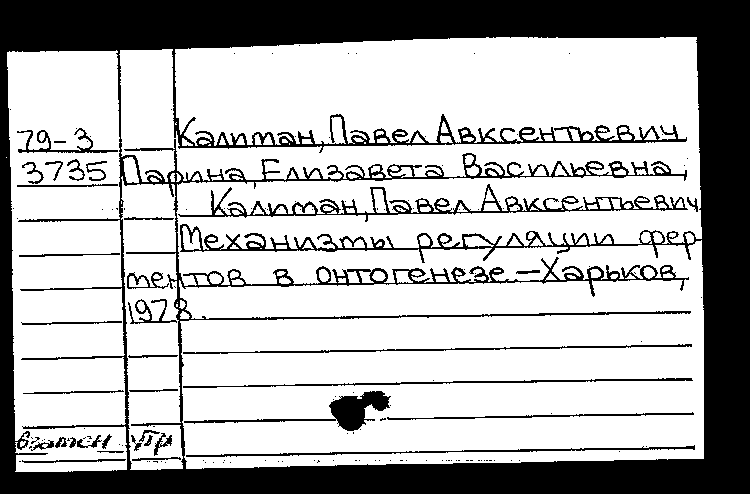 79-3 Калитман, Павел Авксентьевич
3735 Парина, Елизавета Васильевна,
Калитман, Павел Авксентьевич
Механизмы регуляции фер-
ментов в онтогенезе.—Харьков,
1978.
взамен утр